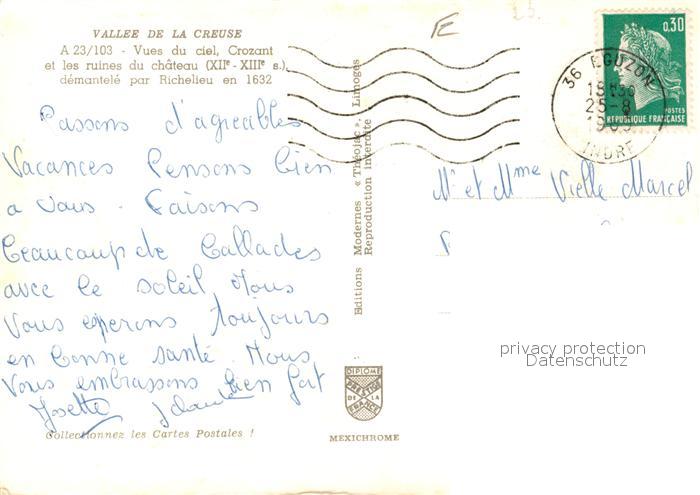 VALLEE DE LA CREUSE
A 23/103 - Vues du ciel, Crozant
et les ruines du château (XIIᵉ - XIIIᵉ s.)
démantelé par Richelieu en 1632
Passons d'agreables
Vacances Pensons bien
a Vous. Faisons
Beaucoup de Ballades
avec le soleil, Nous
Vous esperons toujours
en bonne santé. Nous
Vous embrassons bien fort
Josette
Collectionnez les Cartes Postales !
Editions Modernes « Théojac », Limoges
Reproduction interdite
DIPLOME
PRESTIGE
DE LA
FRANCE
MEXICHROME
0,30
POSTES
REPUBLIQUE FRANÇAISE
36 EGUZON
18H30
25-8
INDRE
Mr et Mme Vielle Marcel
privacy protection
Datenschutz